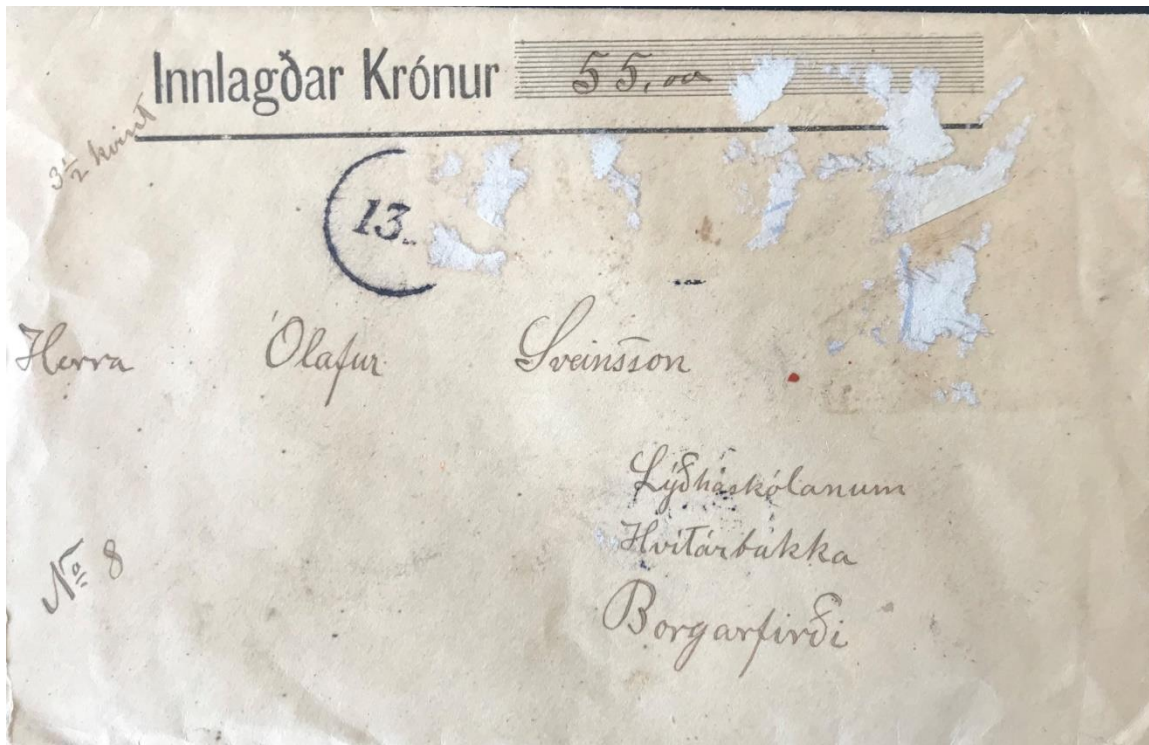 Innlagðar Krónur 55,00
3½ kvint
13.
Herra Ólafur Sveinsson
Lýðháskólanum
Hvítárbakka
No 8
Borgarfirði